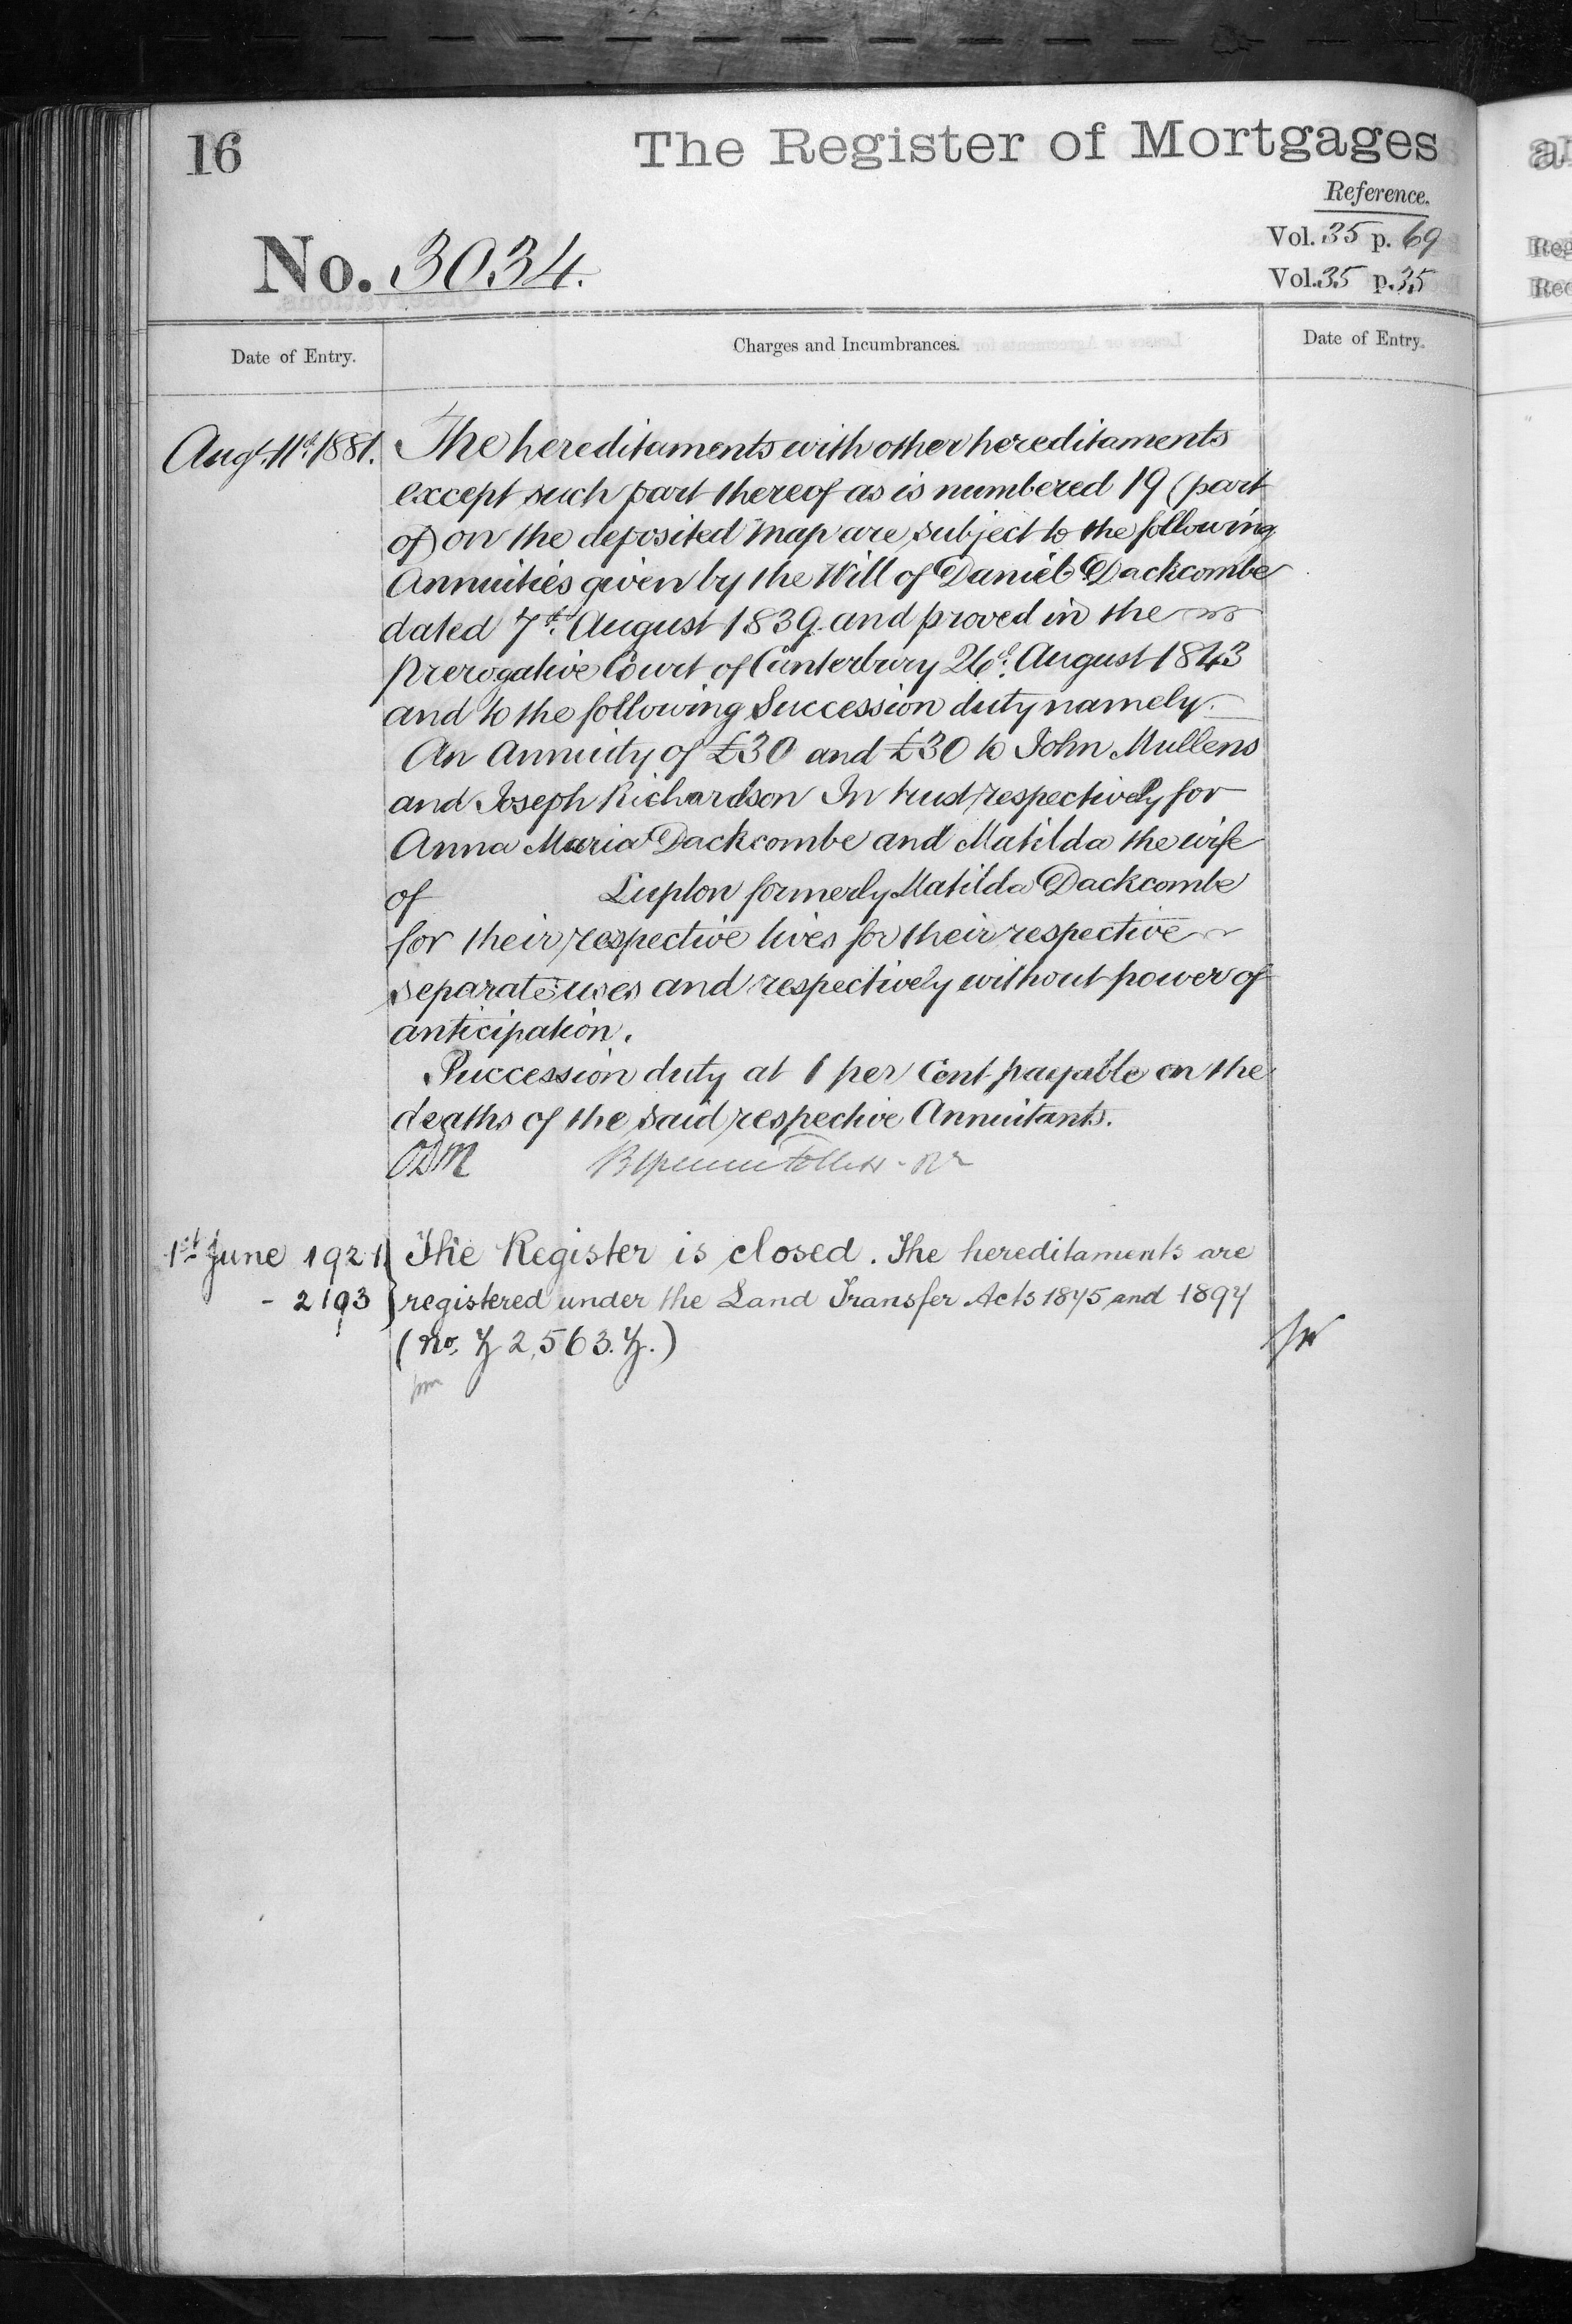 16
The Register of Mortgages
Reference.
No. 3034.
Vol. 35 p. 69
Vol. 35 p. 35
Date of Entry.
Charges and Incumbrances.
Date of Entry.
Augt. 11th 1881.
The hereditaments with other hereditaments
except such part thereof as is numbered 19 (part
of) on the deposited map are subject to the following
Annuities given by the Will of Daniel Dackcombe
dated 7th August 1839 and proved in the
Prerogative Court of Canterbury 26th August 1843
and to the following Succession duty namely.
An Annuity of £30 and £30 to John Mullens
and Joseph Richardson In trust respectively for
Anna Maria Dackcombe and Matilda the wife
of Lupton formerly Matilda Dackcombe
for their respective lives for their respective
separate uses and respectively without power of
anticipation.
Succession duty at 1 per Cent payable on the
deaths of the said respective Annuitants.
1st June 1921
- 2193
The Register is closed. The hereditaments are
registered under the Land Transfer Acts 1875 and 1897
(No. Z 2,563. Z.)